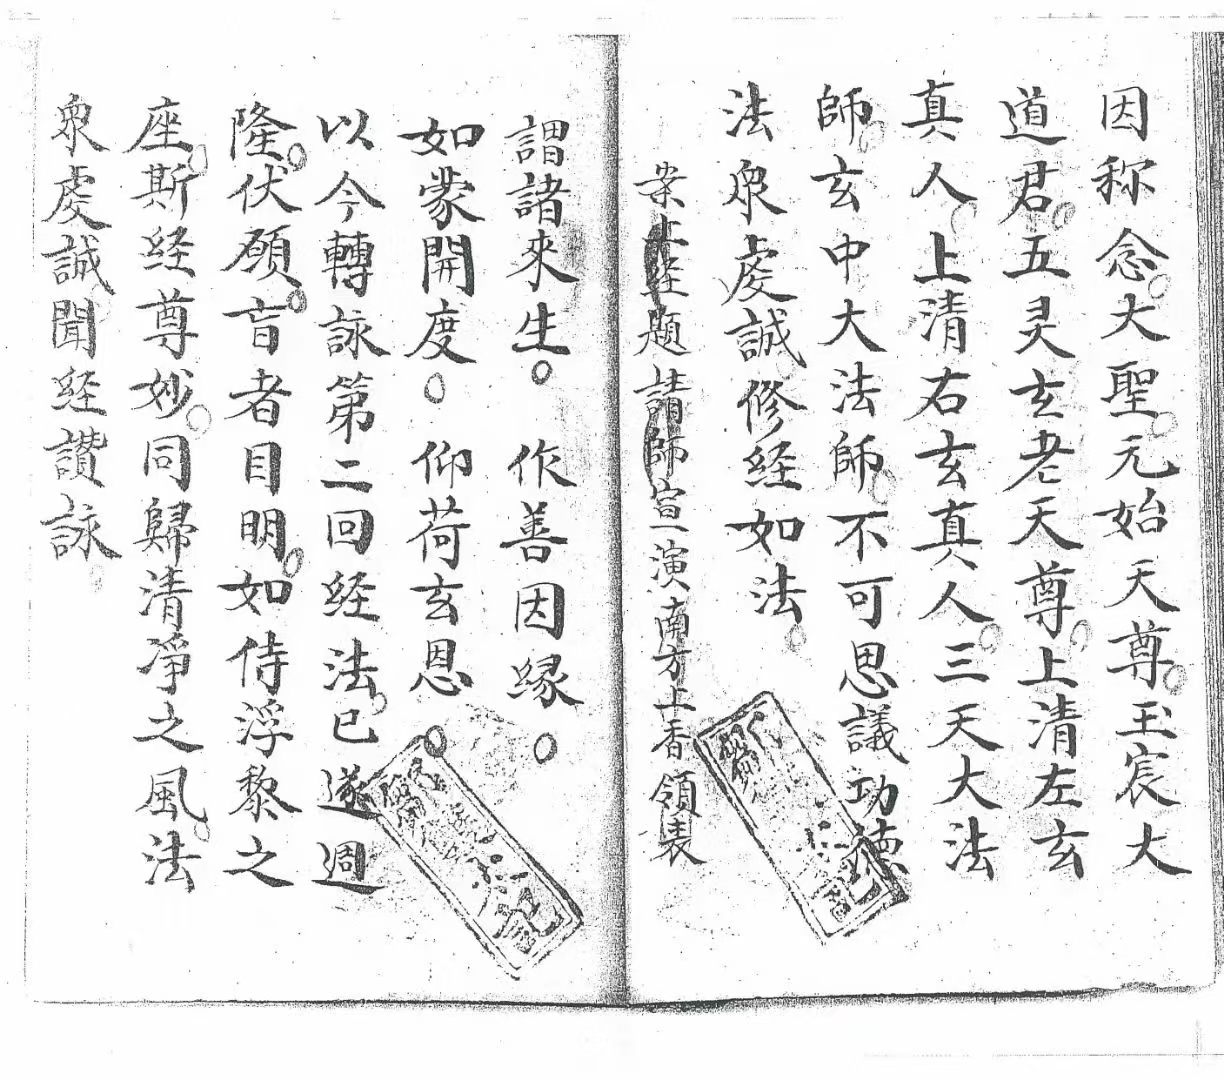 因称念大聖元始天尊玉宸大
道君五灵玄老天尊上清左玄
真人上清右玄真人三天大法
師玄中大法師不可思議功德
法衆虔誠修経如法
案上経題請師宣演南方上香領表
謂諸來生 作善因縁
如蒙開度 仰荷玄恩
以今轉詠第二回経法已遂週
隆伏願盲者目明如侍浮黎之
座斯経尊妙同歸清凈之風法
衆虔誠聞経讚詠
記